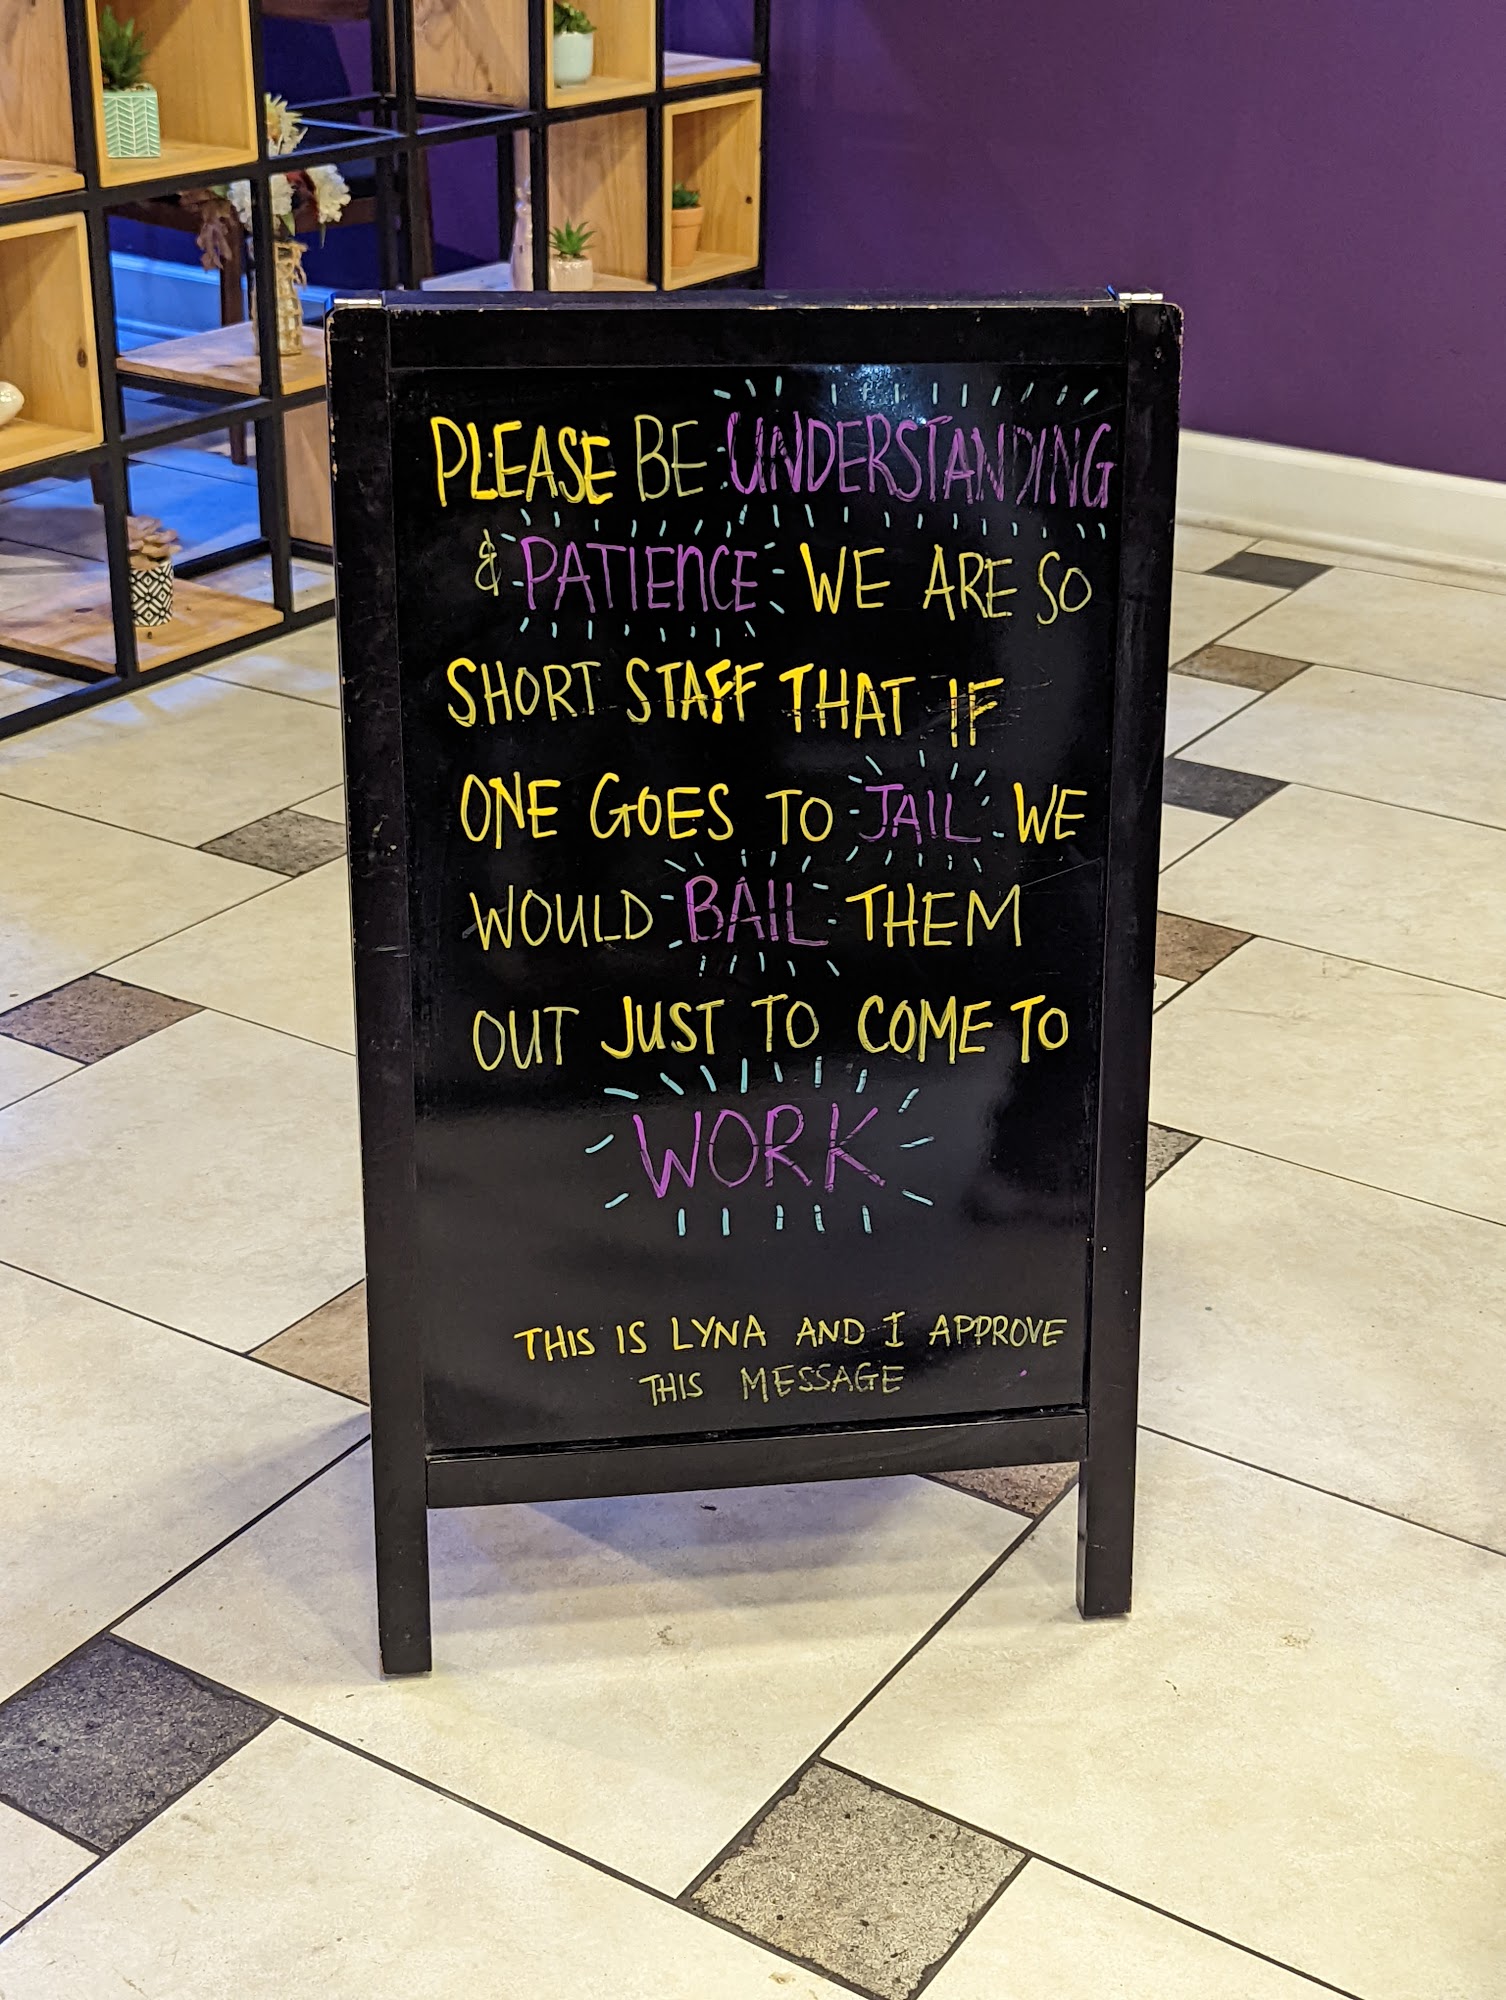 PLEASE BE UNDERSTANDING
& PATIENCE WE ARE SO
SHORT STAFF THAT IF
ONE GOES TO JAIL WE
WOULD BAIL THEM
OUT JUST TO COME TO
WORK
THIS IS LYNA AND I APPROVE
THIS MESSAGE